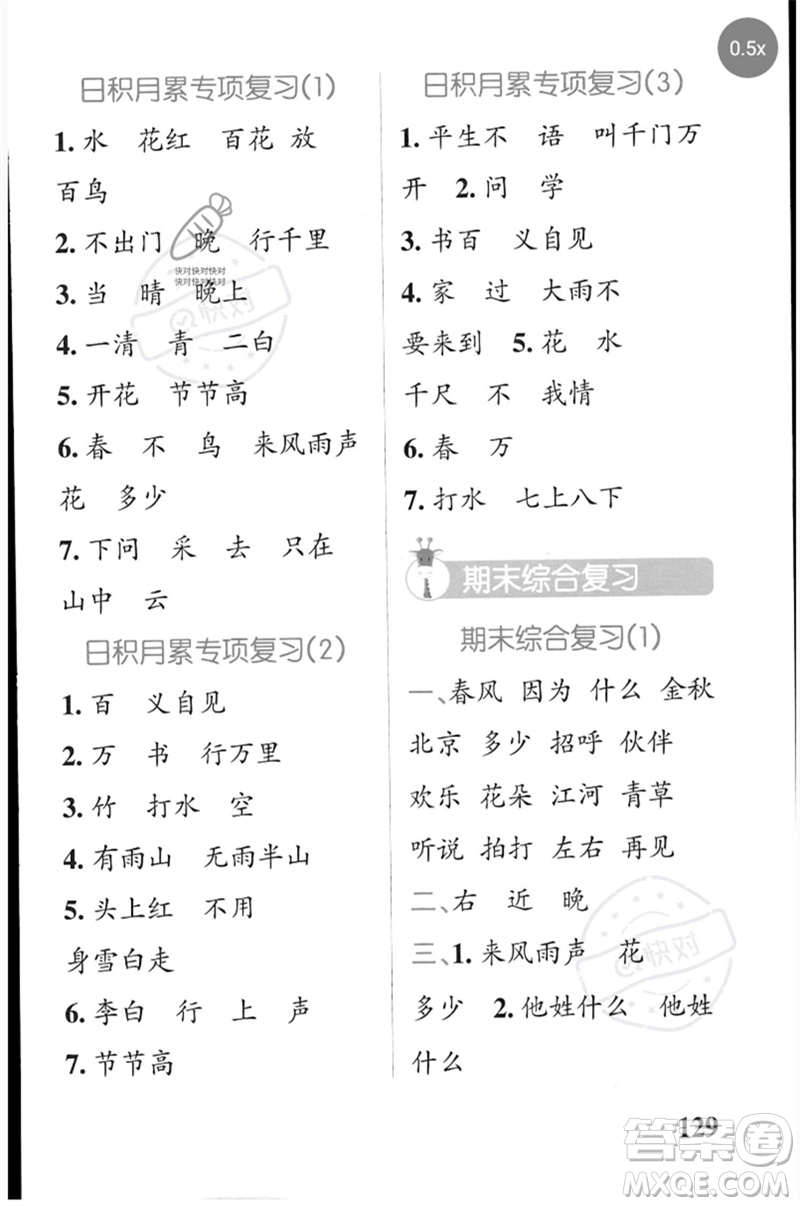 0.5x
日积月累专项复习(1)
1. 水 花红 百花 放
百鸟
2. 不出门 晚 行千里
快对快对快对
快对快对快对
3. 当 晴 晚上
快对
4. 一清 青 二白
5. 开花 节节高
6. 春 不 鸟 来风雨声
花 多少
7. 下问 采 去 只在
山中 云
日积月累专项复习(2)
1. 百 义自见
2. 万 书 行万里
3. 竹 打水 空
4. 有雨山 无雨半山
5. 头上红 不用
身雪白走
6. 李白 行 上 声
7. 节节高
日积月累专项复习(3)
1. 平生不 语 叫千门万
开 2. 问 学
3. 书百 义自见
4. 家 过 大雨不
要来到 5. 花 水
千尺 不 我情
6. 春 万
7. 打水 七上八下
期末综合复习
期末综合复习(1)
一、春风 因为 什么 金秋
北京 多少 招呼 伙伴
欢乐 花朵 江河 青草
听说 拍打 左右 再见
二、右 近 晚
三、1. 来风雨声 花
快对
多少 2. 他姓什么 他姓
什么
129
答案圈
MXQE.COM